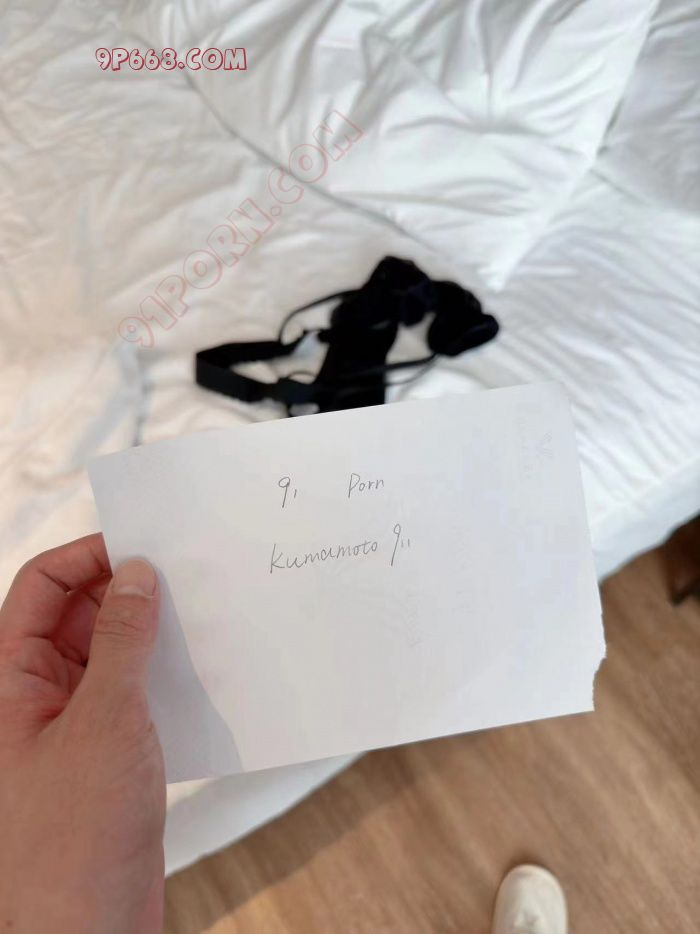 9P668.COM
91PORN.COM
91 Porn
Kumamoto 911